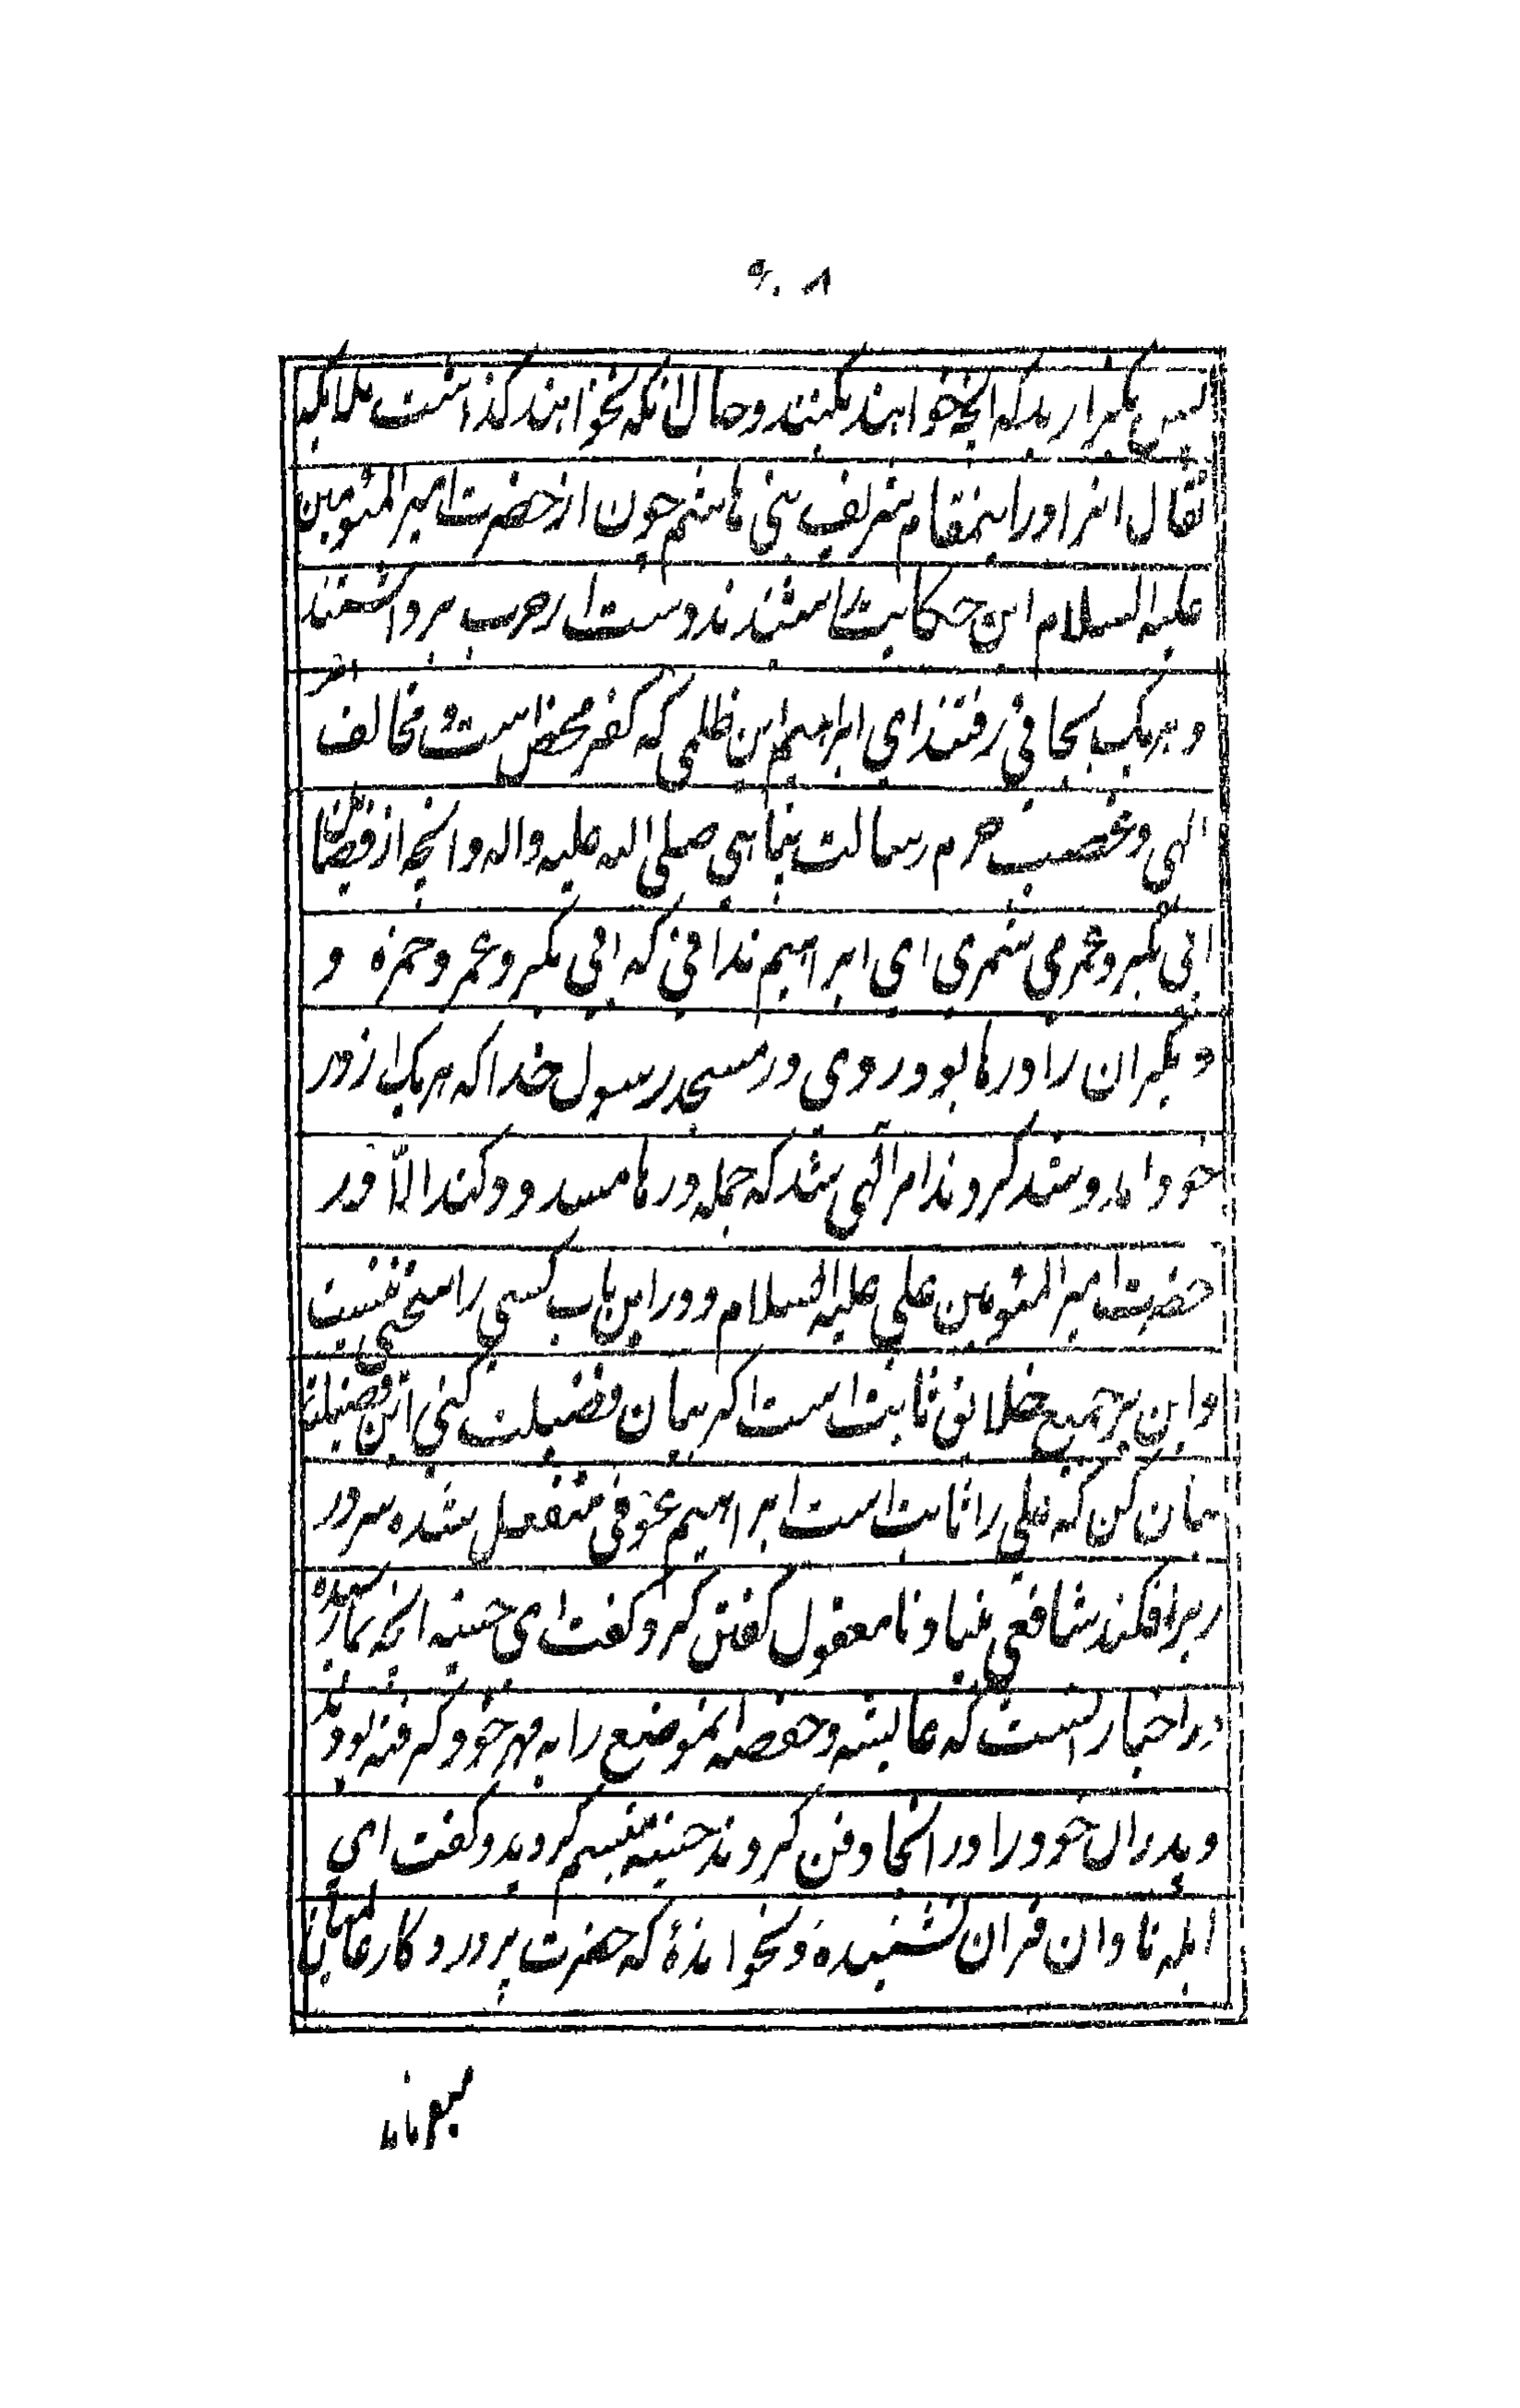 ۸
پس بگذارید که انچه خواهند بکنند و حال انکه نخواهند گذاشت ملایکه
نقال انرا وراینمقام شریف بنی هاشم چون از حضرت امیر المئومین
علیه السلام این حکایت را شنیدند دست از حرب برداشتند
و هریک بجائی رفتند ای ابراهیم این ظلمی که کفر محض است و مخالف امر
الهی و غصب حرم رسالت پناهی صلی الله علیه واله و انچه از فضایل
ابی بکر و عمر می شمری ای ابراهیم ندانی که ابی بکر و عمر و حمزه و
دیگران را درها بود در وی در مسجد رسول خدا که هریک از در
خود امد و شد کردند امر الهی شد که جمله درها مسدود کنند الّا در
حضرت امیر المئومین علی علیه السلام و در این باب کسی را سخنی نیست
و این بر جمیع خلائق ثابت است اگر بیان فضیلت کنی این فضیلت
بیان کن که علی را ثابت است ابراهیم عوفی منفعل شده سر در
زیر افکند شافعی بنیاد نامعقول گفتن کرد و گفت ای حسنیه انچه بما رسیده
در اخبار انست که عایشه و حفصه انموضع را به مهر خود گرفته بودند
و پدران خود را در انجا دفن کردند حسنیه متبسم گردید و گفت ای
ابله نادان قران نشنیده و نخوانده که حضرت پروردگار